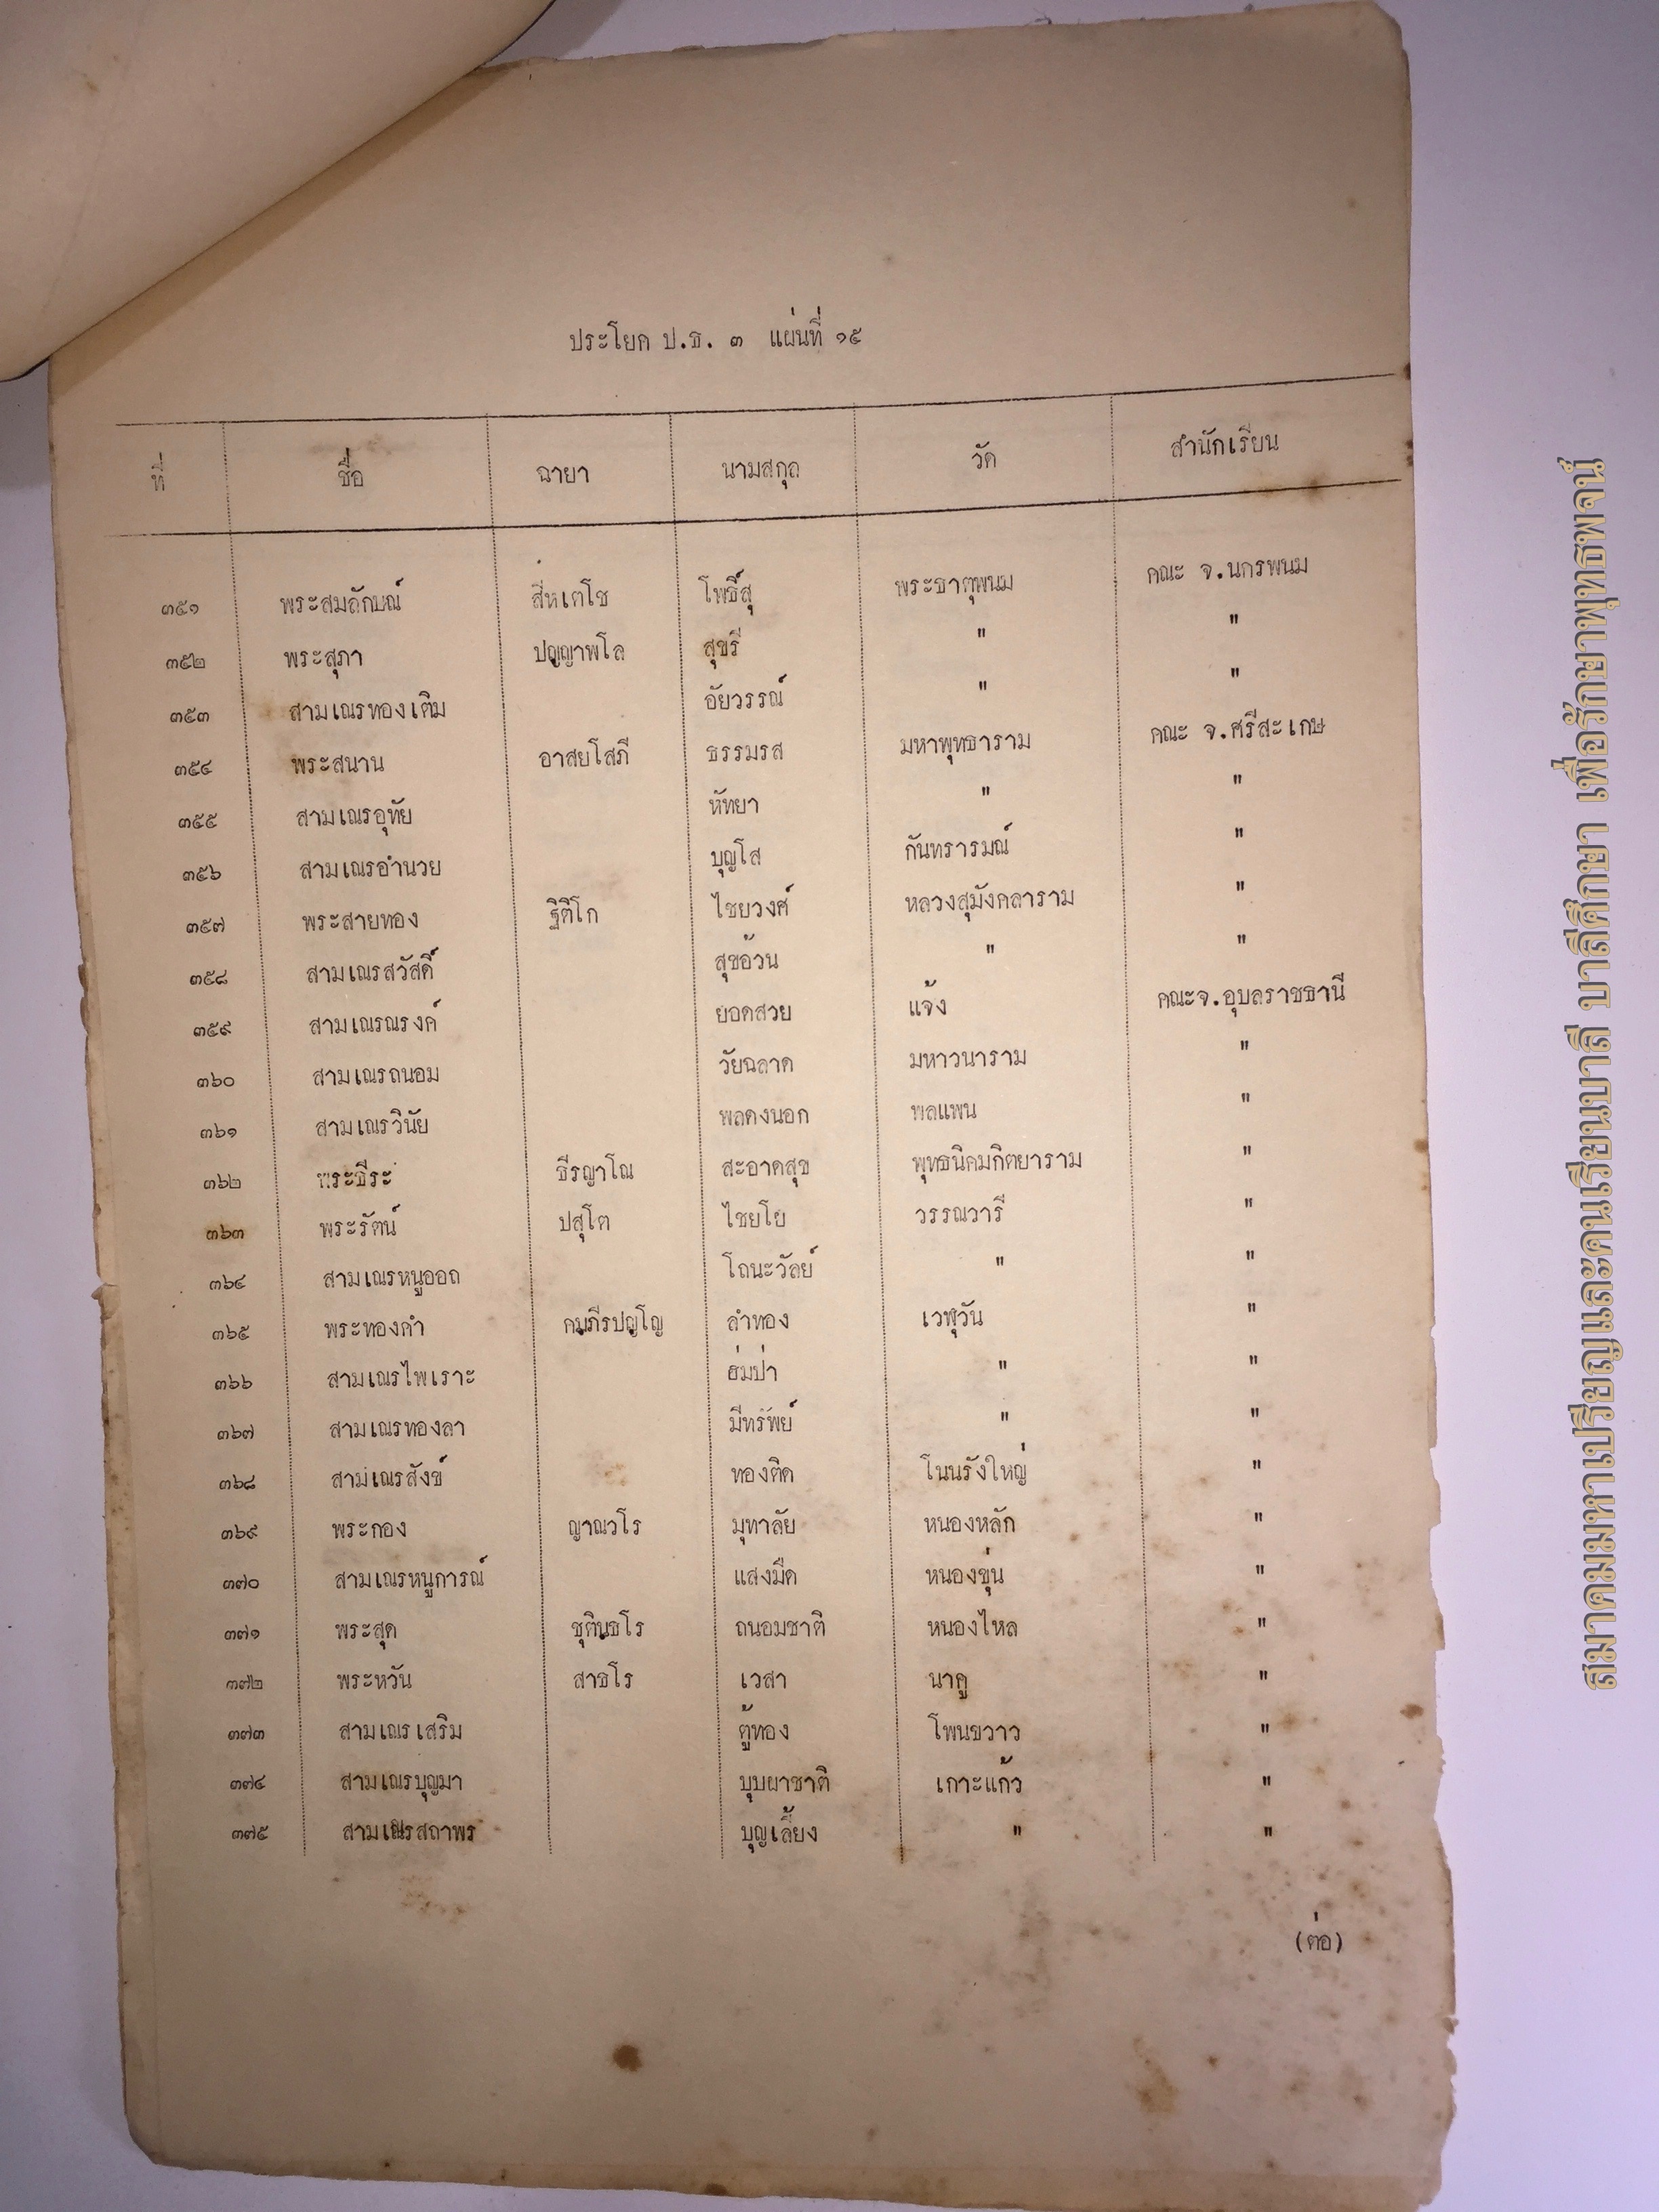 ประโยค ป.ธ. ๓ แผ่นที่ ๑๕
ที่ ชื่อ ฉายา นามสกุล วัด สำนักเรียน
๓๕๑ พระสมลักษณ์ สีหเตโช โพธิ์สุ พระธาตุพนม คณะ จ.นครพนม
๓๕๒ พระสุภา ปญฺญาพโล สุขรี " "
๓๕๓ สามเณรทองเติม อัยวรรณ์ " "
๓๕๔ พระสนาน อาสยโสภี ธรรมรส มหาพุทธาราม คณะ จ.ศรีสะเกษ
๓๕๕ สามเณรอุทัย หัทยา " "
๓๕๖ สามเณรอำนวย บุญโส กันทรารมณ์ "
๓๕๗ พระสายทอง ฐิติโก ไชยวงศ์ หลวงสุมังคลาราม "
๓๕๘ สามเณรสวัสดิ์ สุขอ้วน " "
๓๕๙ สามเณรณรงค์ ยอดสวย แจ้ง คณะจ.อุบลราชธานี
๓๖๐ สามเณรถนอม วัยฉลาด มหาวนาราม "
๓๖๑ สามเณรวินัย พลดงนอก พลแพน "
๓๖๒ พระธีระ ธีรญาโณ สะอาดสุข พุทธนิคมกิตยาราม "
๓๖๓ พระรัตน์ ปสุโต ไชยโย วรรณวารี "
๓๖๔ สามเณรหนูออด โถนะวัลย์ " "
๓๖๕ พระทองคำ คมฺภีรปญฺโญ ลำทอง เวฬุวัน "
๓๖๖ สามเณรไพเราะ ฮ่มป่า " "
๓๖๗ สามเณรทองลา มีทรัพย์ " "
๓๖๘ สามเณรสังข์ ทองติด โนนรังใหญ่ "
๓๖๙ พระกอง ญาณวโร มุทาลัย หนองหลัก "
๓๗๐ สามเณรหนูการณ์ แสงมืด หนองขุ่น "
๓๗๑ พระสุด ชุตินฺธโร ถนอมชาติ หนองไหล "
๓๗๒ พระหวัน สาธโร เวสา นาคู "
๓๗๓ สามเณรเสริม ตู้ทอง โพนขวาว "
๓๗๔ สามเณรบุญมา บุบผาชาติ เกาะแก้ว "
๓๗๕ สามเณรสถาพร บุญเลี้ยง " "
(ต่อ)
สมาคมมหาเปรียญและคนเรียนบาลี บาลีศึกษา เพื่อรักษาพุทธพจน์